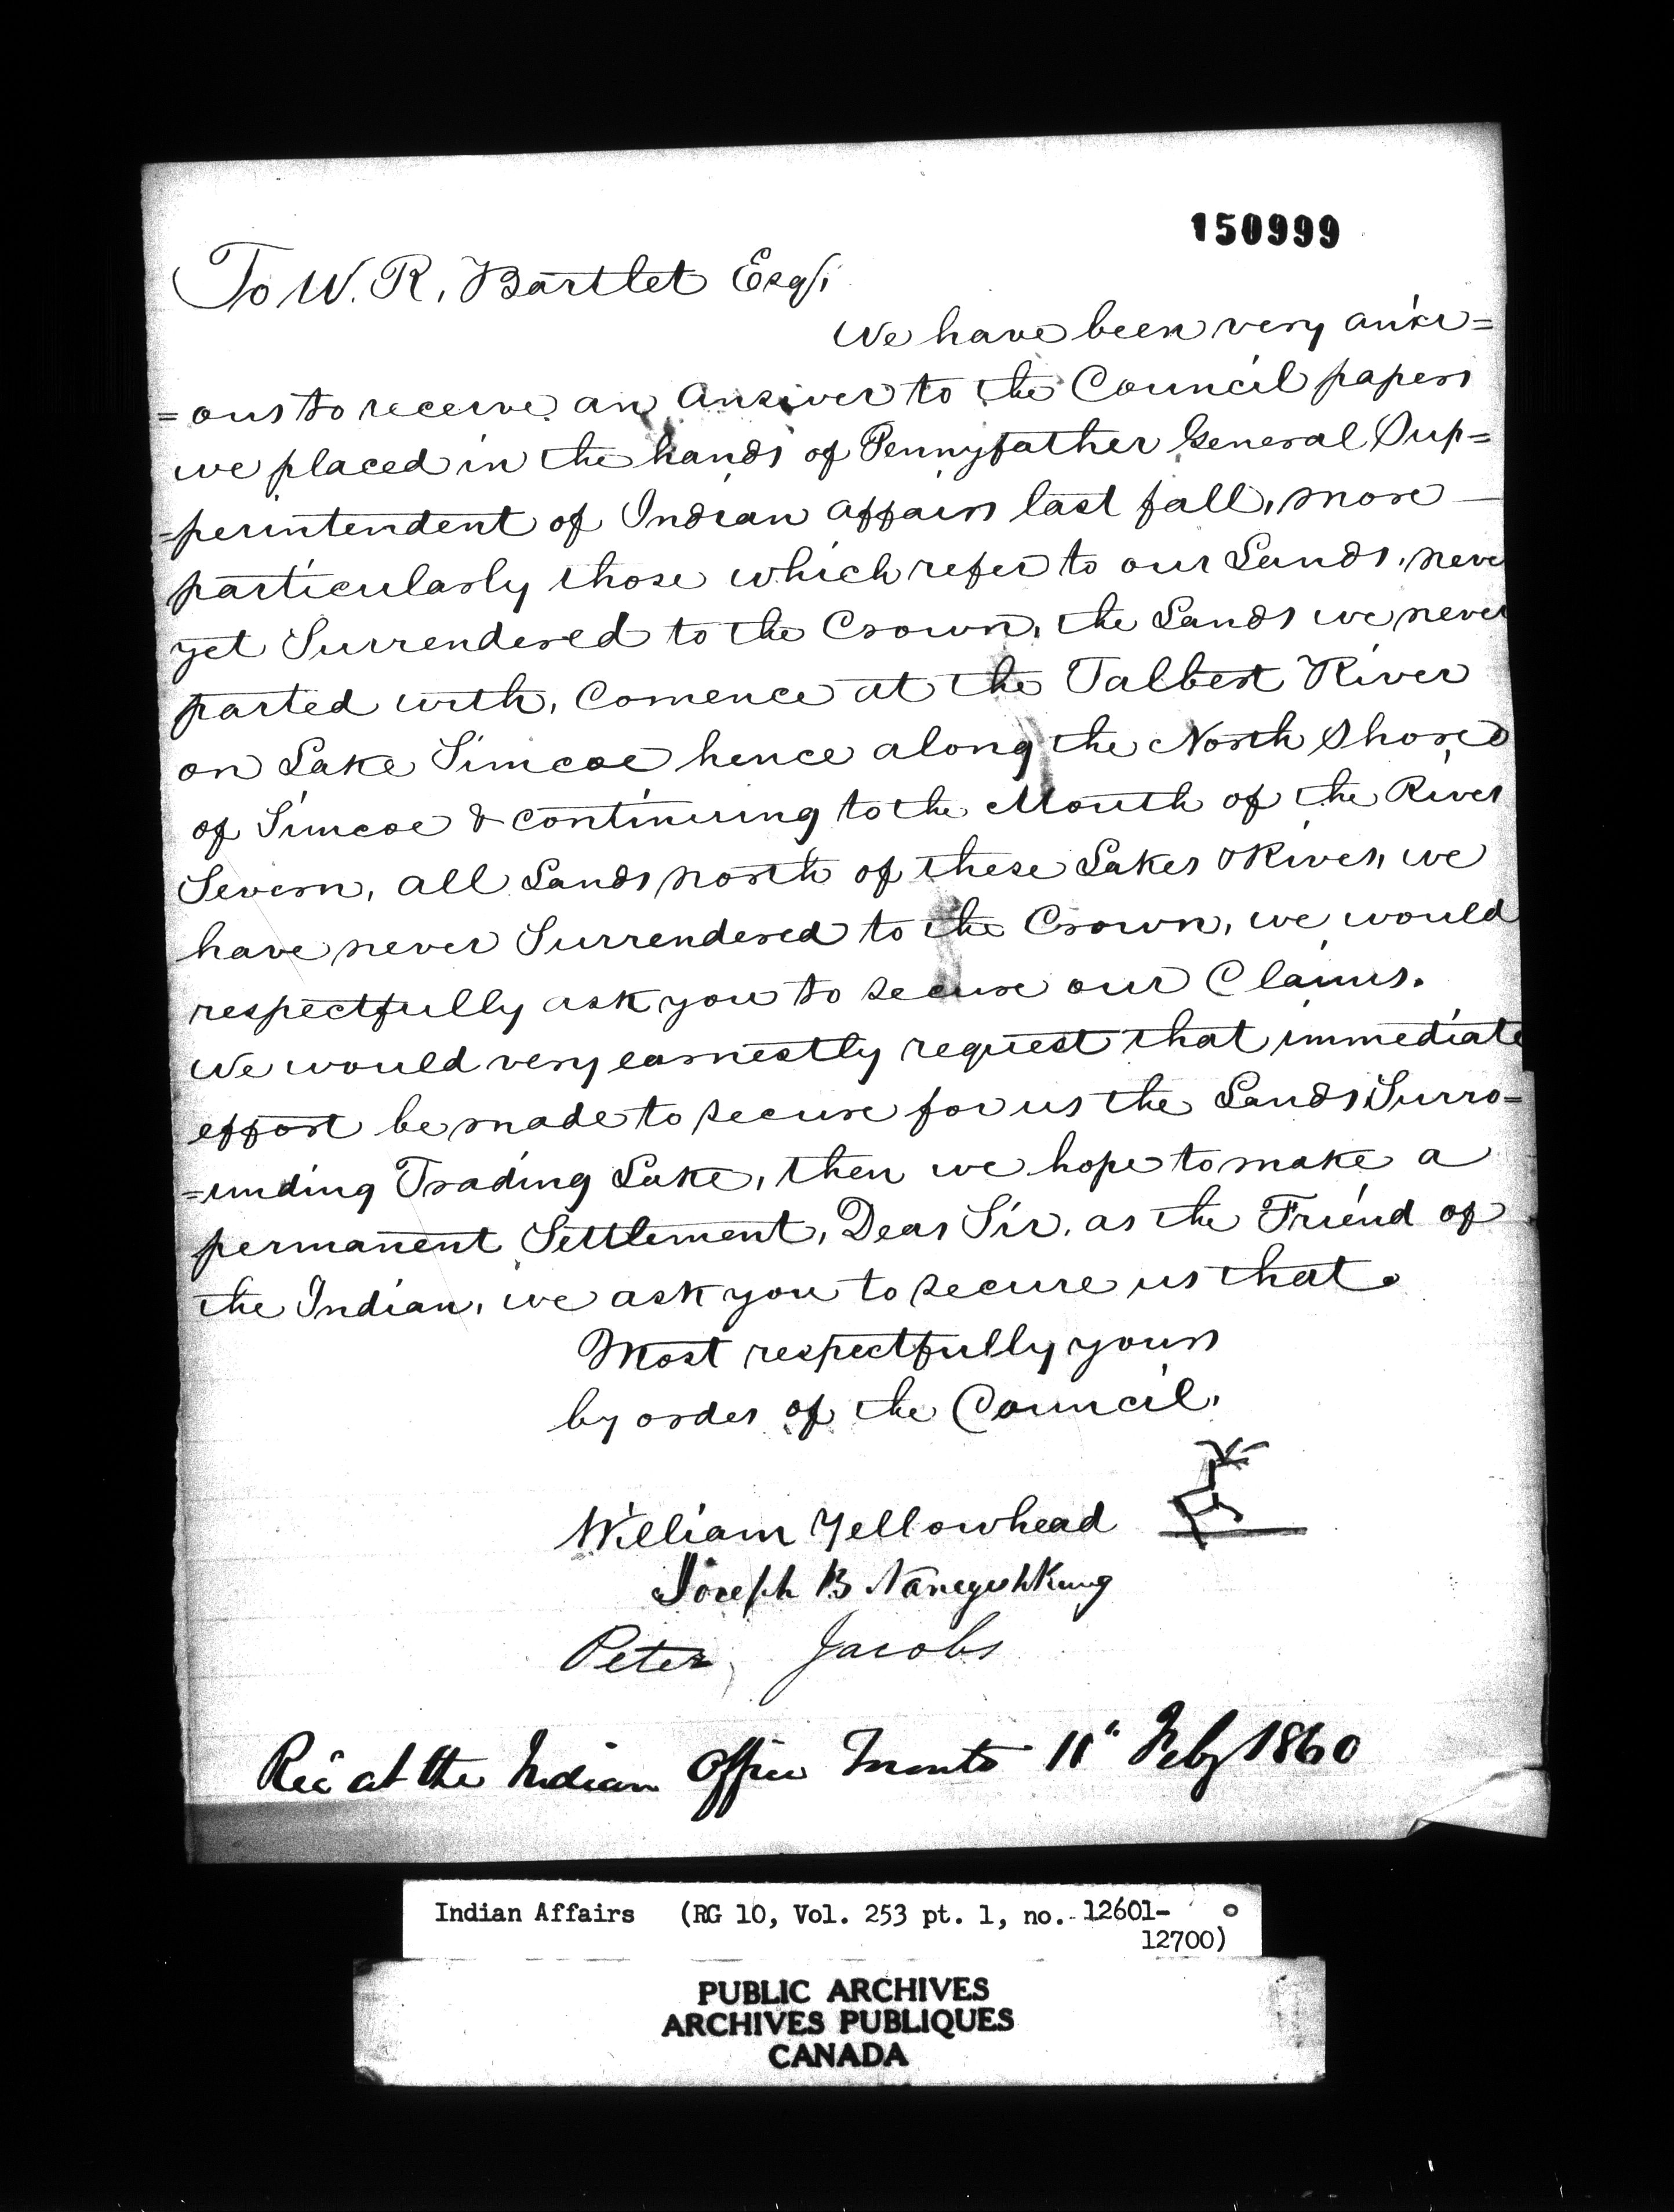 150999
To W. R. Bartlet Esq;
We have been very anxi=
=ous to receive an answer to the Council papers
we placed in the hands of Pennyfather General Sup=
=perintendent of Indian affairs last fall, more
particularly those which refer to our Lands, never
yet Surrendered to the Crown, the Lands we never
parted with, Comence at the Talbert River
on Lake Simcoe hence along the North Shore
of Simcoe & continuing to the Mouth of the River
Severn, all Lands north of these Lakes & Rivers, we
have never Surrendered to the Crown, we would
respectfully ask you to secure our Claims.
We would very earnestly request that immediate
effort be made to secure for us the Lands Surro=
=unding Trading Lake, then we hope to make a
permanent Settlement, Dear Sir, as the Friend of
the Indian, we ask you to secure us that.
Most respectfully yours
by order of the Council,
William Yellowhead
Joseph B
Peter Jacobs
Rec at the Indian Office Toronto 11" Feby 1860
Indian Affairs (RG 10, Vol. 253 pt. 1, no. 12601-
12700)
PUBLIC ARCHIVES
ARCHIVES PUBLIQUES
CANADA